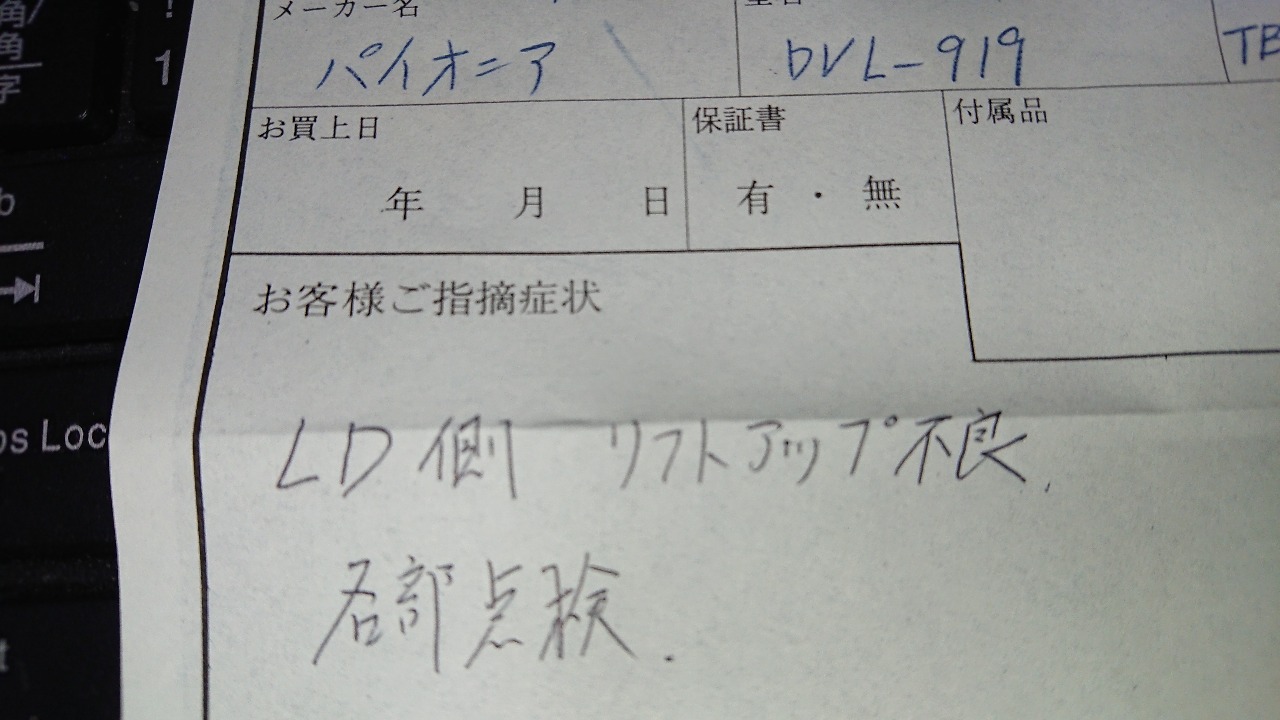 角/
角
字
!
1
メーカー名
パイオニア
DVL-919
TE
お買上日
保証書
付属品
年 月 日
有 ・ 無
お客様ご指摘症状
LD側 リフトアップ不良.
各部点検.
b
os Loc
t